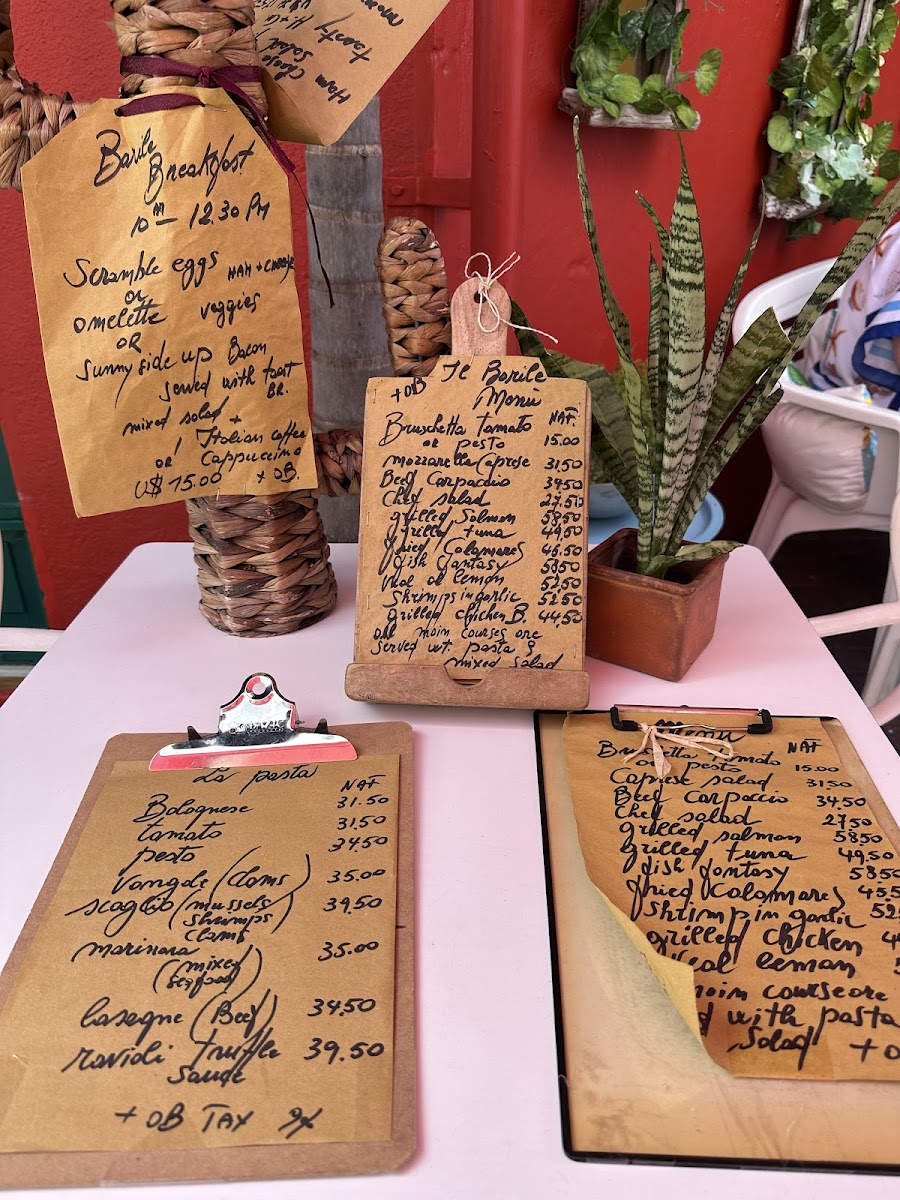 Ham
Cheese
Salad
toasty
Barile
Breakfast
10 AM — 12.30 PM
Scramble eggs HAM + CHEESE
or
omelette veggies
OR
Sunny side up Bacon
served with toast
BR.
mixed salad +
Italian coffee
or Cappuccino
U$ 15.00 + OB.
+ OB Il Barile
Menu
NAF
Bruschetta tomato
or pesto 15.00
mozzarella Caprese 31,50
Beef Carpaccio 34,50
Chef salad 27,50
grilled Salmon 58,50
grilled tuna 49,50
fried Calamares 46,50
fish fantasy 58,50
Veal al lemon 52,50
Shrimps in garlic 52.50
grilled chicken B. 44,50
all main courses are
served wt. pasta &
mixed salad
La pasta
NAF
Bolognese 31.50
tomato 31,50
pesto 34.50
Vongole (Clams) 35.00
scoglio (mussels 39,50
shrimps
clams)
marinara 35.00
(mixed
seafood)
lasegne (Beef) 34.50
ravioli truffle 39.50
Saude
+ OB TAX 9%
Menu
NAF
Bruschetta tomato
or pesto 15.00
Caprese salad 31,50
Beef Carpaccio 34,50
Chef salad 27,50
grilled salmon 58,50
grilled tuna 49,50
fish fantasy 5850
fried Calamares
Shrimp in garlic
grilled chicken
Veal lemon
main course are
with pasta
Salad